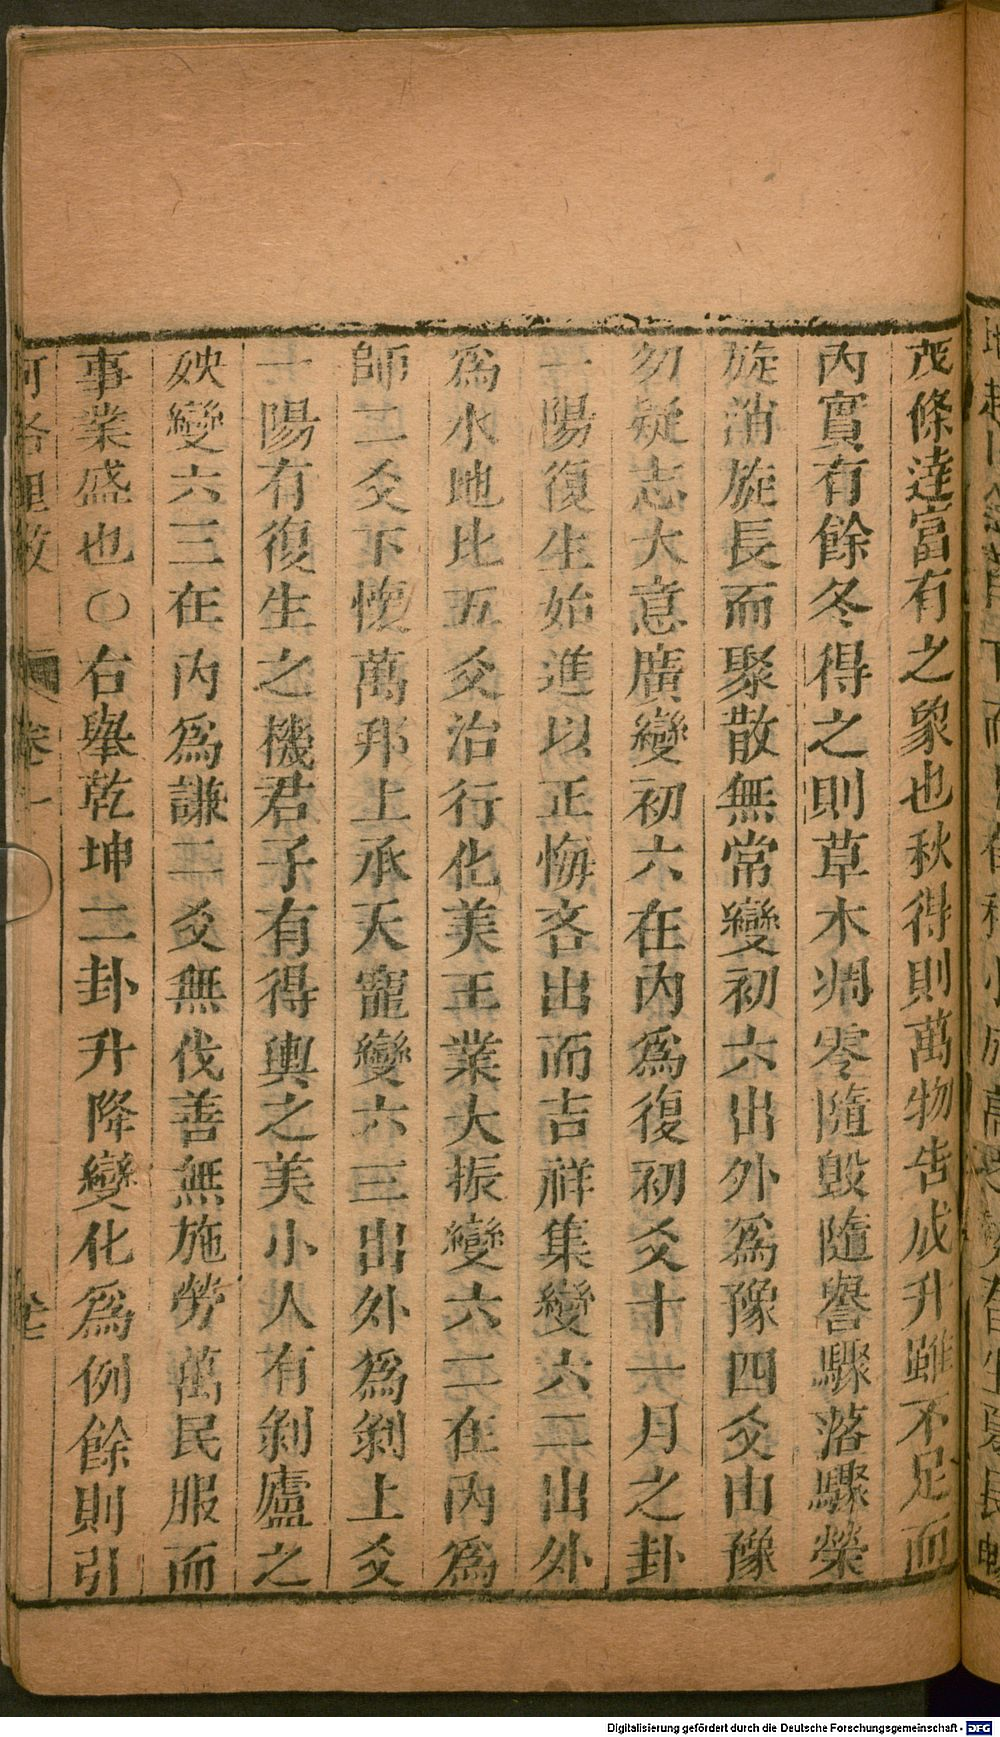 茂條達富有之象也秋得則萬物告成升雖不足而
內實有餘冬得之則草木凋零隨毀隨譽驟落驟榮
旋消旋長而聚散無常變初六出外為豫四爻由豫
勿疑志大意廣變初六在內為復初爻十一月之卦
一陽復生始進以正悔吝出而吉祥集變六二出外
為水地比五爻治行化美王業大振變六二在內為
師二爻下懷萬邦上承天寵變六三出外為剝上爻
一陽有復生之機君子有得輿之美小人有剝廬之
殃變六三在內為謙二爻無伐善無施勞萬民服而
事業盛也〇右舉乾坤二卦升降變化為例餘則引
河洛理數 卷一
Digitalisierung gefördert durch die Deutsche Forschungsgemeinschaft - DFG